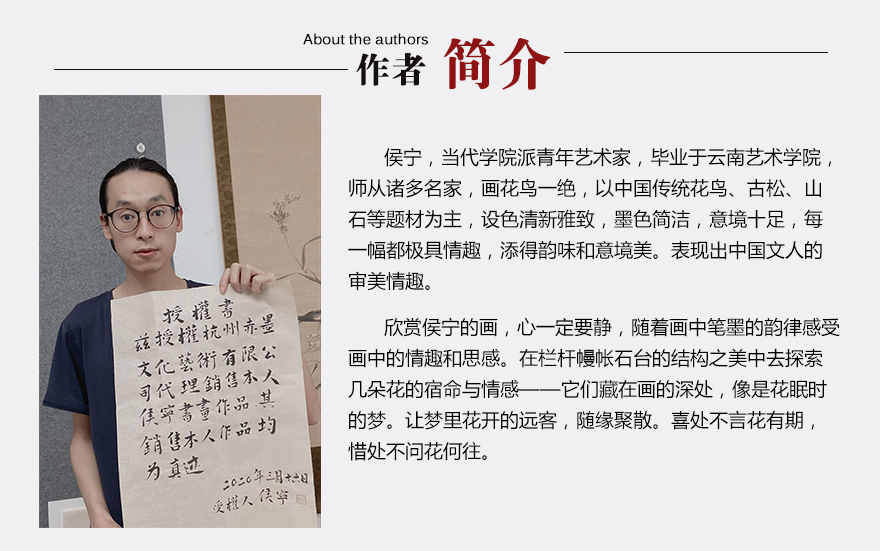 About the authors
作者 简介
侯宁，当代学院派青年艺术家，毕业于云南艺术学院，
师从诸多名家，画花鸟一绝，以中国传统花鸟、古松、山
石等题材为主，设色清新雅致，墨色简洁，意境十足，每
一幅都极具情趣，添得韵味和意境美。表现出中国文人的
审美情趣。
欣赏侯宁的画，心一定要静，随着画中笔墨的韵律感受
画中的情趣和思感。在栏杆幔帐石台的结构之美中去探索
几朵花的宿命与情感——它们藏在画的深处，像是花眠时
的梦。让梦里花开的远客，随缘聚散。喜处不言花有期，
惜处不问花何往。
授權書
兹授權杭州赤墨
文化藝術有限公
司代理銷售本人
侯宁書畫作品其
銷售本人作品均
为真迹
2020年三月十六日
受權人 侯寧